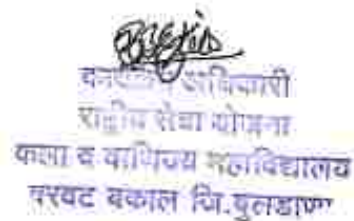 अधिकारी
राष्ट्रीय सेवा योजना
कला व वाणिज्य महाविद्यालय
वरवट बकाल जि.बुलडाणा